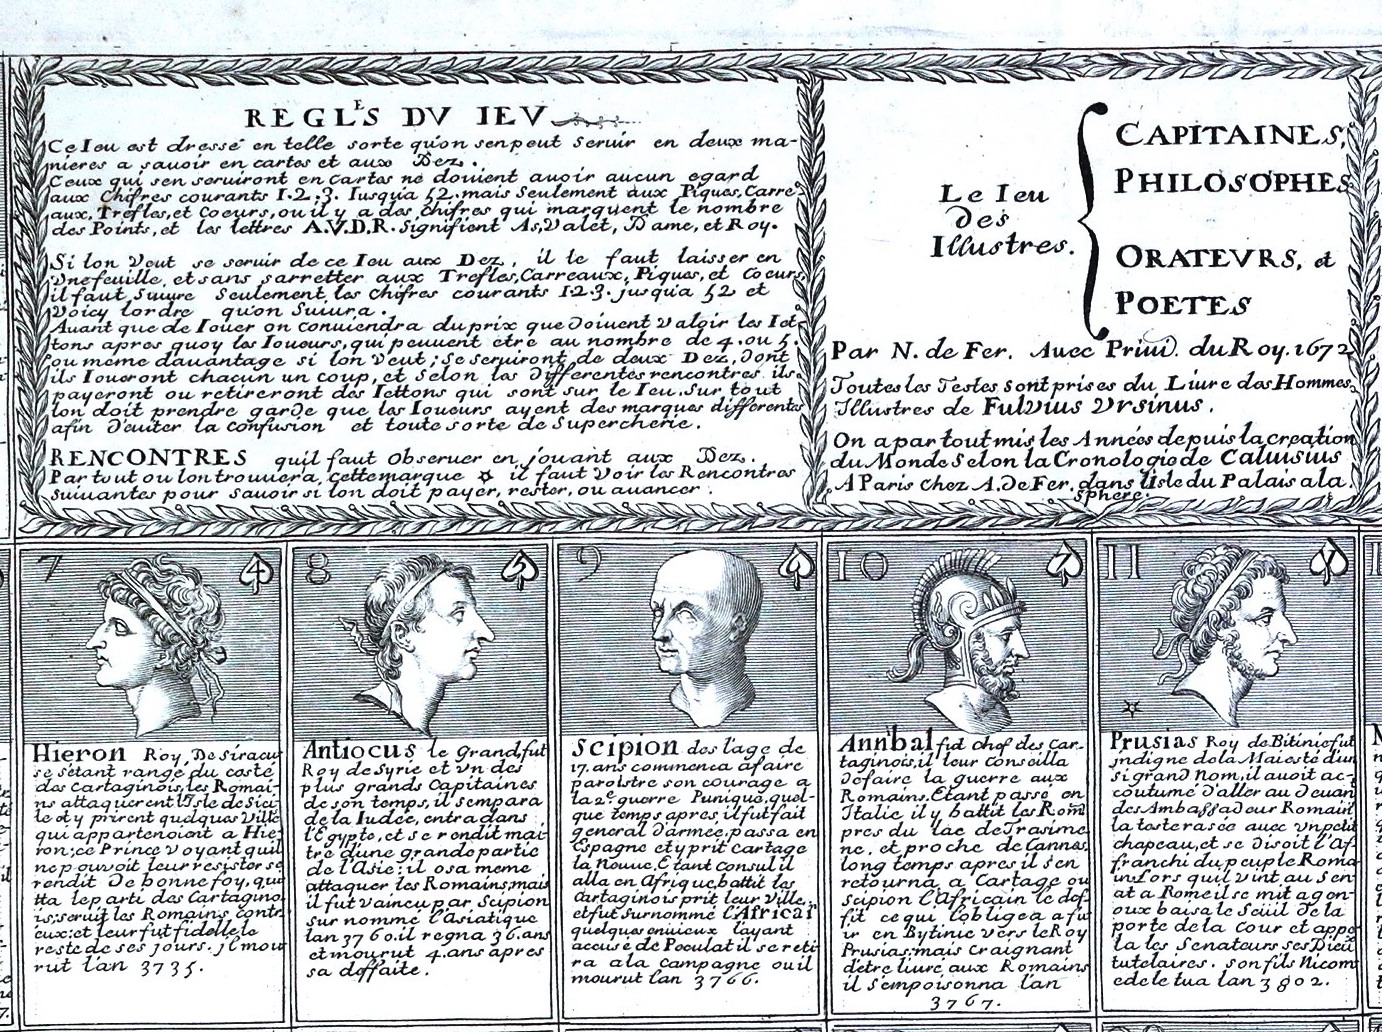 REGLES DV IEV
Ce Ieu est dressé en telle sorte qu'on sen peut seruir en deux ma-
nieres a sauoir en cartes et aux Dez.
Ceux qui sen seruiront en cartes ne doiuent auoir aucun egard
aux chifres courants 1.2.3. Iusqu'a 52. mais seulement aux Piques, Carre
aux, Trefles, et Coeurs, ou il y a des chifres qui marquent le nombre
des Points, et les lettres A.V.D.R. signifient As, Valet, Dame, et Roy.
Si lon veut se seruir de ce Ieu aux Dez, il le faut laisser en
vne feuille, et sans sarretter aux Trefles, Carreaux, Piques, et Coeurs
il faut suiure seulement les chifres courants 1.2.3. jusqu'a 52 et
voicy lordre qu'on suiura.
Auant que de Iouer on conuiendra du prix que doiuent valoir les Iet-
tons apres quoy les Ioueurs, qui peuuent etre au nombre de 4. ou 5.
ou méme dauantage si lon veut; se seruiront de deux Dez, dont
ils Ioueront chacun un coup, et selon les differentes rencontres ils
payeront ou retireront des Iettons qui sont sur le Ieu. Sur tout
lon doit prendre garde que les Ioueurs ayent des marques differentes
afin d'euiter la confusion et toute sorte de supercherie.
RENCONTRES quil faut obseruer en jouant aux Dez.
Par tout ou lon trouuera cette marque ☆ il faut voir les Rencontres
suiuantes pour sauoir si lon doit payer, rester, ou auancer.
Le Ieu
des
Illustres.
CAPITAINES,
PHILOSOPHES
ORATEVRS, et
POETES
Par N. de Fer. Auec Priuil. du Roy. 1672
Toutes les Testes sont prises du Liure des Hommes
Illustres de Fulvius Vrsinus.
On a par tout mis les Années depuis la creation
du Monde selon la Cronologie de Caluisius
A Paris chez A. de Fer. dans l'isle du Palais a la
sphere.
7 4
Hieron Roy, De siracu
se sétant rangé du costé
des Cartaginois, les Romai-
ns attaquerent l'Isle de Sici
le et y prirent quelques ville
qui appartenoient a Hie
ron; ce Prince voyant quil
ne pouvoit leur resister se
rendit de bonne foy, qui
tta le parti des Cartagino
is, seruit les Romains contr
eux: et leur fut fidelle le
reste de ses jours. jl mou
rut l'an 3735.
8 5
Antiocus le grand, fut
Roy de Syrie et vn des
plus grands Capitaines
de son temps, il sempara
de la Iudée, entra dans
l'Egypte, et se rendit mai
tre d'une grande partie
de l'Asie: il osa meme
attaquer les Romains, mais
il fut vaincu par Scipion
surnommé l'Asiatique
lan 3760. il regna 36. ans
et mourut 4. ans apres
sa deffaite.
9 6
Scipion des l'age de
17. ans commenca a faire
paroistre son courage a
la 2e guerre Punique, quel-
que temps apres, il fut fait
general d'armée, passa en
Espagne et y prit cartage
la Nouue. Etant Consul il
alla en Afrique, battit les
Cartaginois prit leur ville,
et fut surnommé l'Africai
quelques enuieux layant
accusé de Peculat il se reti
ra a la campagne ou il
mourut lan 3766.
10 7
Annibal fut chef des Car-
taginois, il leur conseilla
de faire la guerre aux
Romains. Etant passé en
Italie il y battit les Rom
pres du lac de Trasime
ne, et proche de Cannes,
long temps apres il s'en
retourna a Cartage ou
Scipion l'Africain le def
fit ce qui l'obligea a fu
ir en Bytinie vers le Roy
Prusias: mais craignant
d'etre liuré aux Romains
il s'empoisonna l'an
3767.
11 V
Prusias Roy de Bitinie fut
indigne de la Maiesté d'un
si grand Nom, il auoit ac-
coutumé d'aller au deuan
des Ambassadeur Romain
la teste rasée auec vn petit
chapeau, et se disoit l'Af
franchi du peuple Roma
in. Lors quil vint au Sen
at a Rome il se mit a gen-
oux baisa le Seüil de la
porte de la Cour et appe
la les Senateurs ses Dieu
tutelaires. son fils Nicom
ede le tua lan 3802.